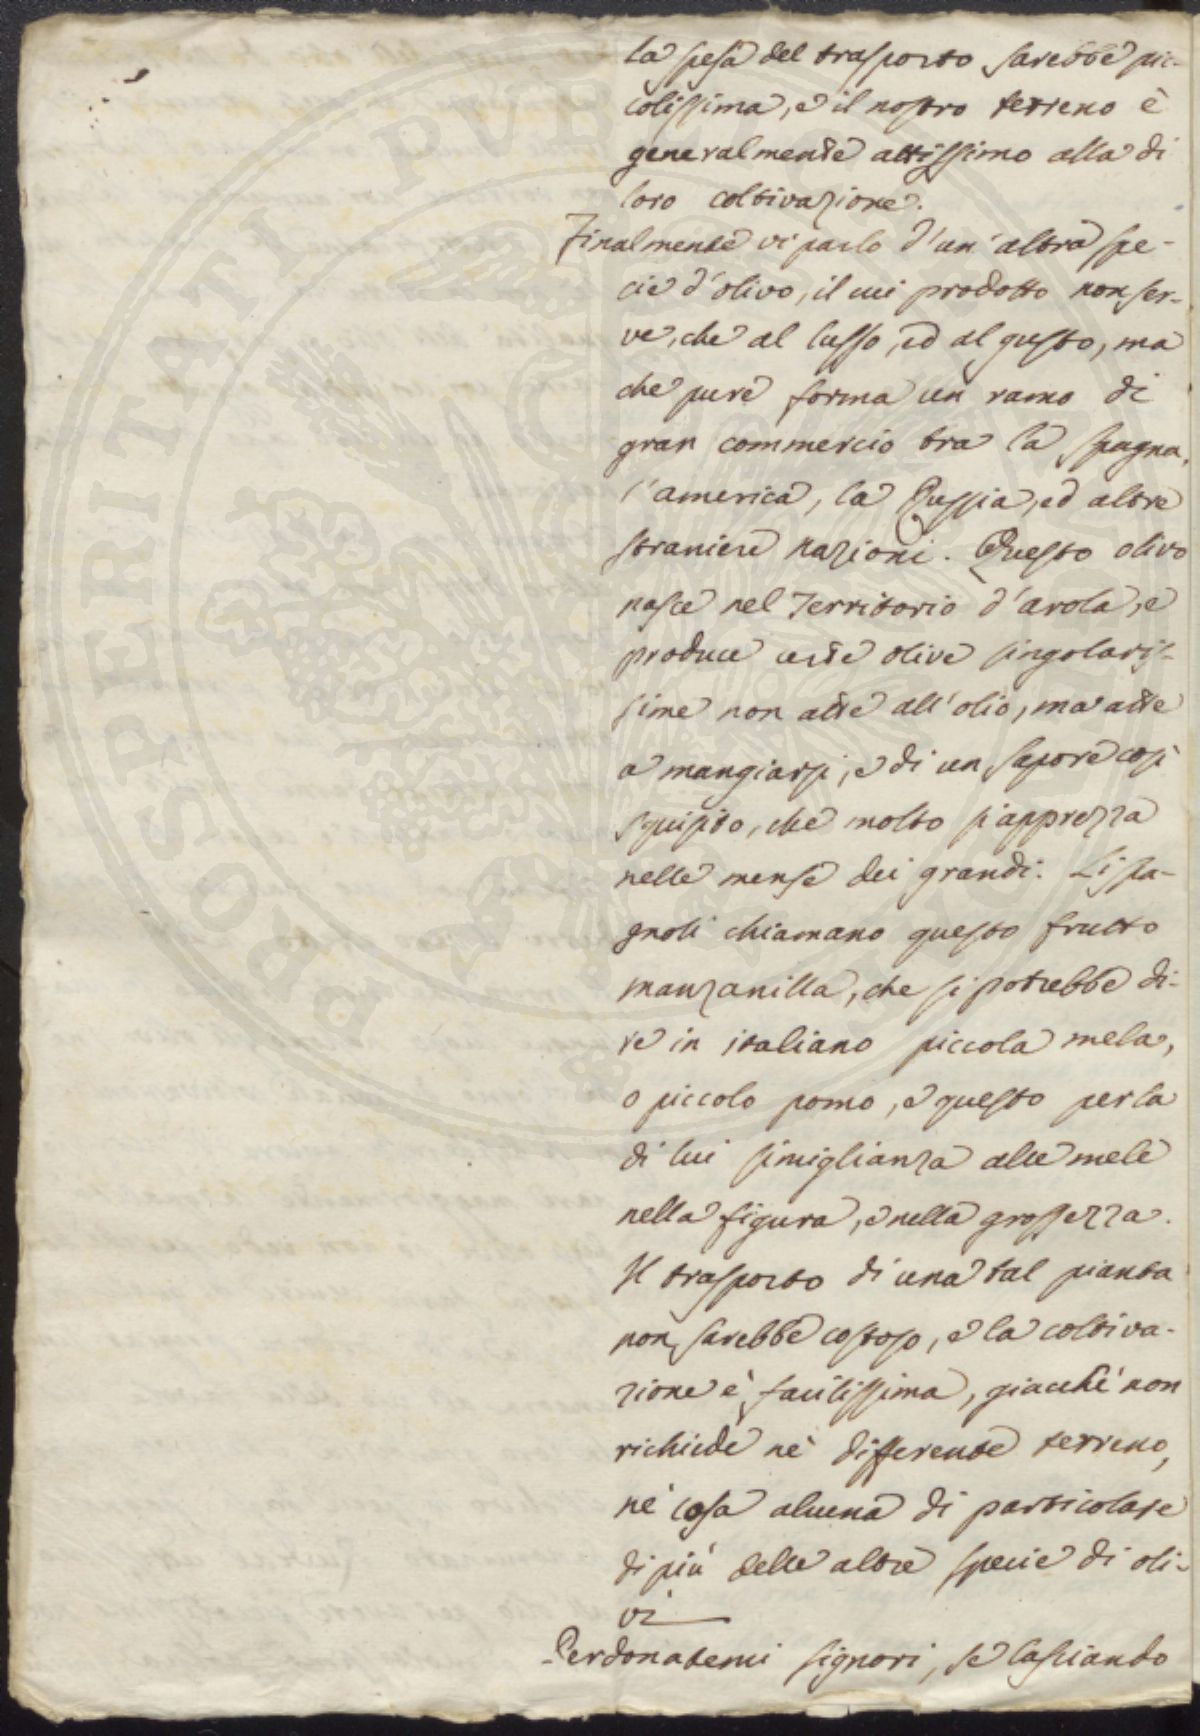 la spesa del trasporto sarebbe pic-
colissima, e il nostro terreno è
generalmente attissimo alla di
loro coltivazione.
Finalmente vi parlo d'un'altra spe-
cie d'olivo, il cui prodotto non ser-
ve, che al lusso, ed al gusto, ma
che pure forma un ramo di
gran commercio tra la Spagna,
l'america, la Russia, ed altre
straniere nazioni. Questo olivo
nasce nel Territorio d'arola, e
produce certe olive singolaris-
sime non atte all'olio, ma atte
a mangiarsi, e di un sapore così
squisito, che molto s'apprezza
nelle mense dei grandi. Li spa-
gnoli chiamano questo frutto
manzanilla, che si potrebbe di-
re in italiano piccola mela,
o piccolo pomo, e questo per la
di lui simiglianza alle mele
nella figura, e nella grossezza.
Il trasporto di una tal pianta
non sarebbe costoso, e la coltiva-
zione è facilissima, giacchè non
richiede nè differente terreno,
nè cosa alcuna di particolare
di più delle altre specie di oli-
vi
Perdonatemi signori, se lasciando
PROSPERITATI PUBLICAE